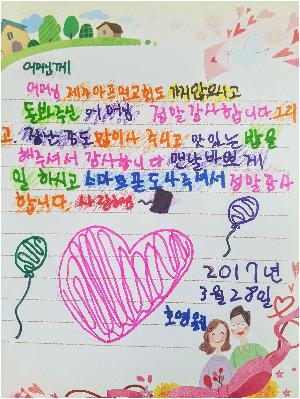 어머님께
어머님 제가아프면교회도 가지않으시고
돌봐주신 어머님. 정말감사합니다그리
고 많이사 주시고 맛있는 밥을
해주셔서 감사합니다 맨날바쁘게
일 하시고 스마트폰도사주셔서 정말감사
합니다 사랑해요
2017년
3월28일
호영올림